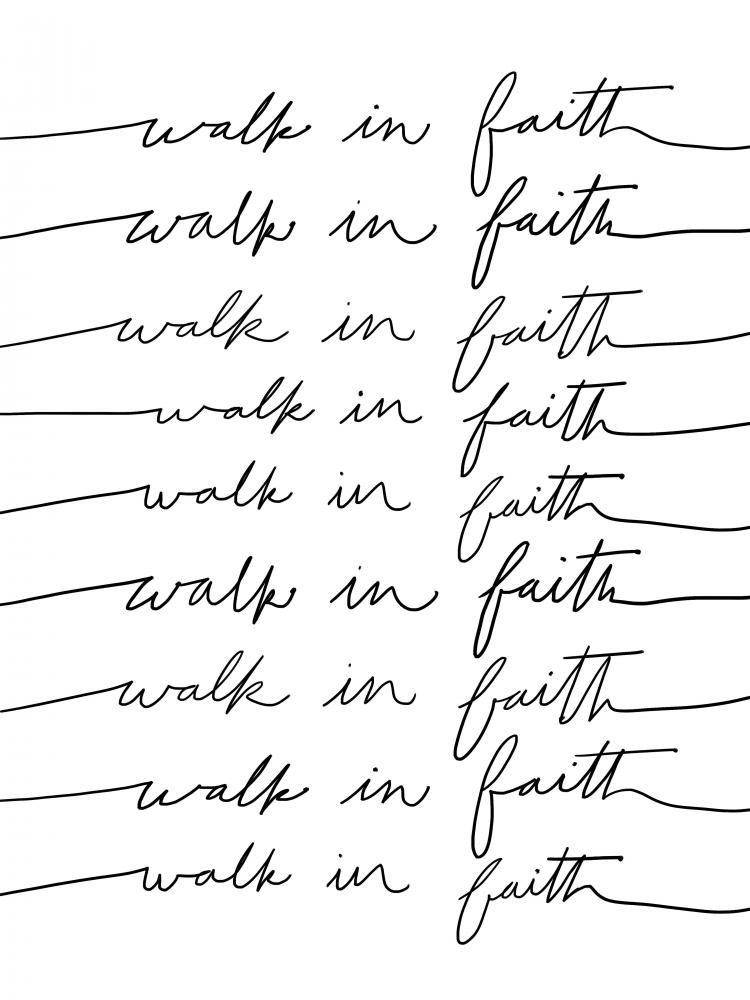 walk in faith
walk in faith
walk in faith
walk in faith
walk in faith
walk in faith
walk in faith
walk in faith
walk in faith